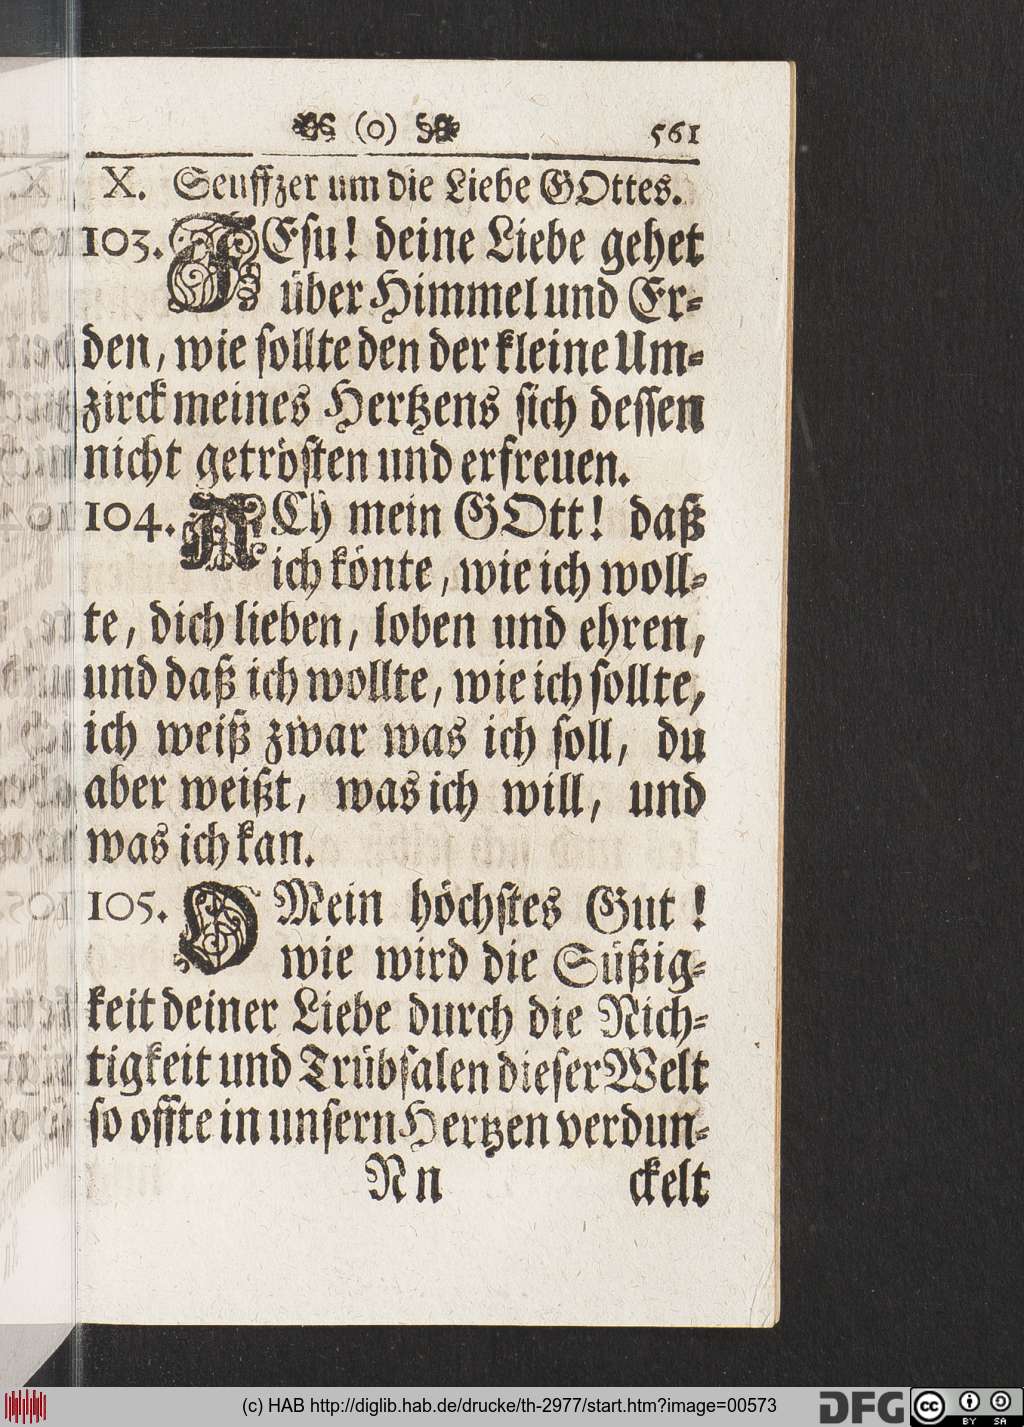 (o) 561
X. Seuffzer um die Liebe GOttes.
103. JEsu! deine Liebe gehet
über Himmel und Er-
den, wie sollte den der kleine Um-
zirck meines Hertzens sich dessen
nicht getrösten und erfreuen.
104. ACh mein GOtt! daß
ich könte, wie ich woll-
te, dich lieben, loben und ehren,
und daß ich wollte, wie ich sollte,
ich weiß zwar was ich soll, du
aber weißt, was ich will, und
was ich kan.
105. O Mein höchstes Gut!
wie wird die Süßig-
keit deiner Liebe durch die Nich-
tigkeit und Trübsalen dieser Welt
so offte in unsern Hertzen verdun-
Nn ckelt
(c) HAB http://diglib.hab.de/drucke/th-2977/start.htm?image=00573
DFG
cc BY SA